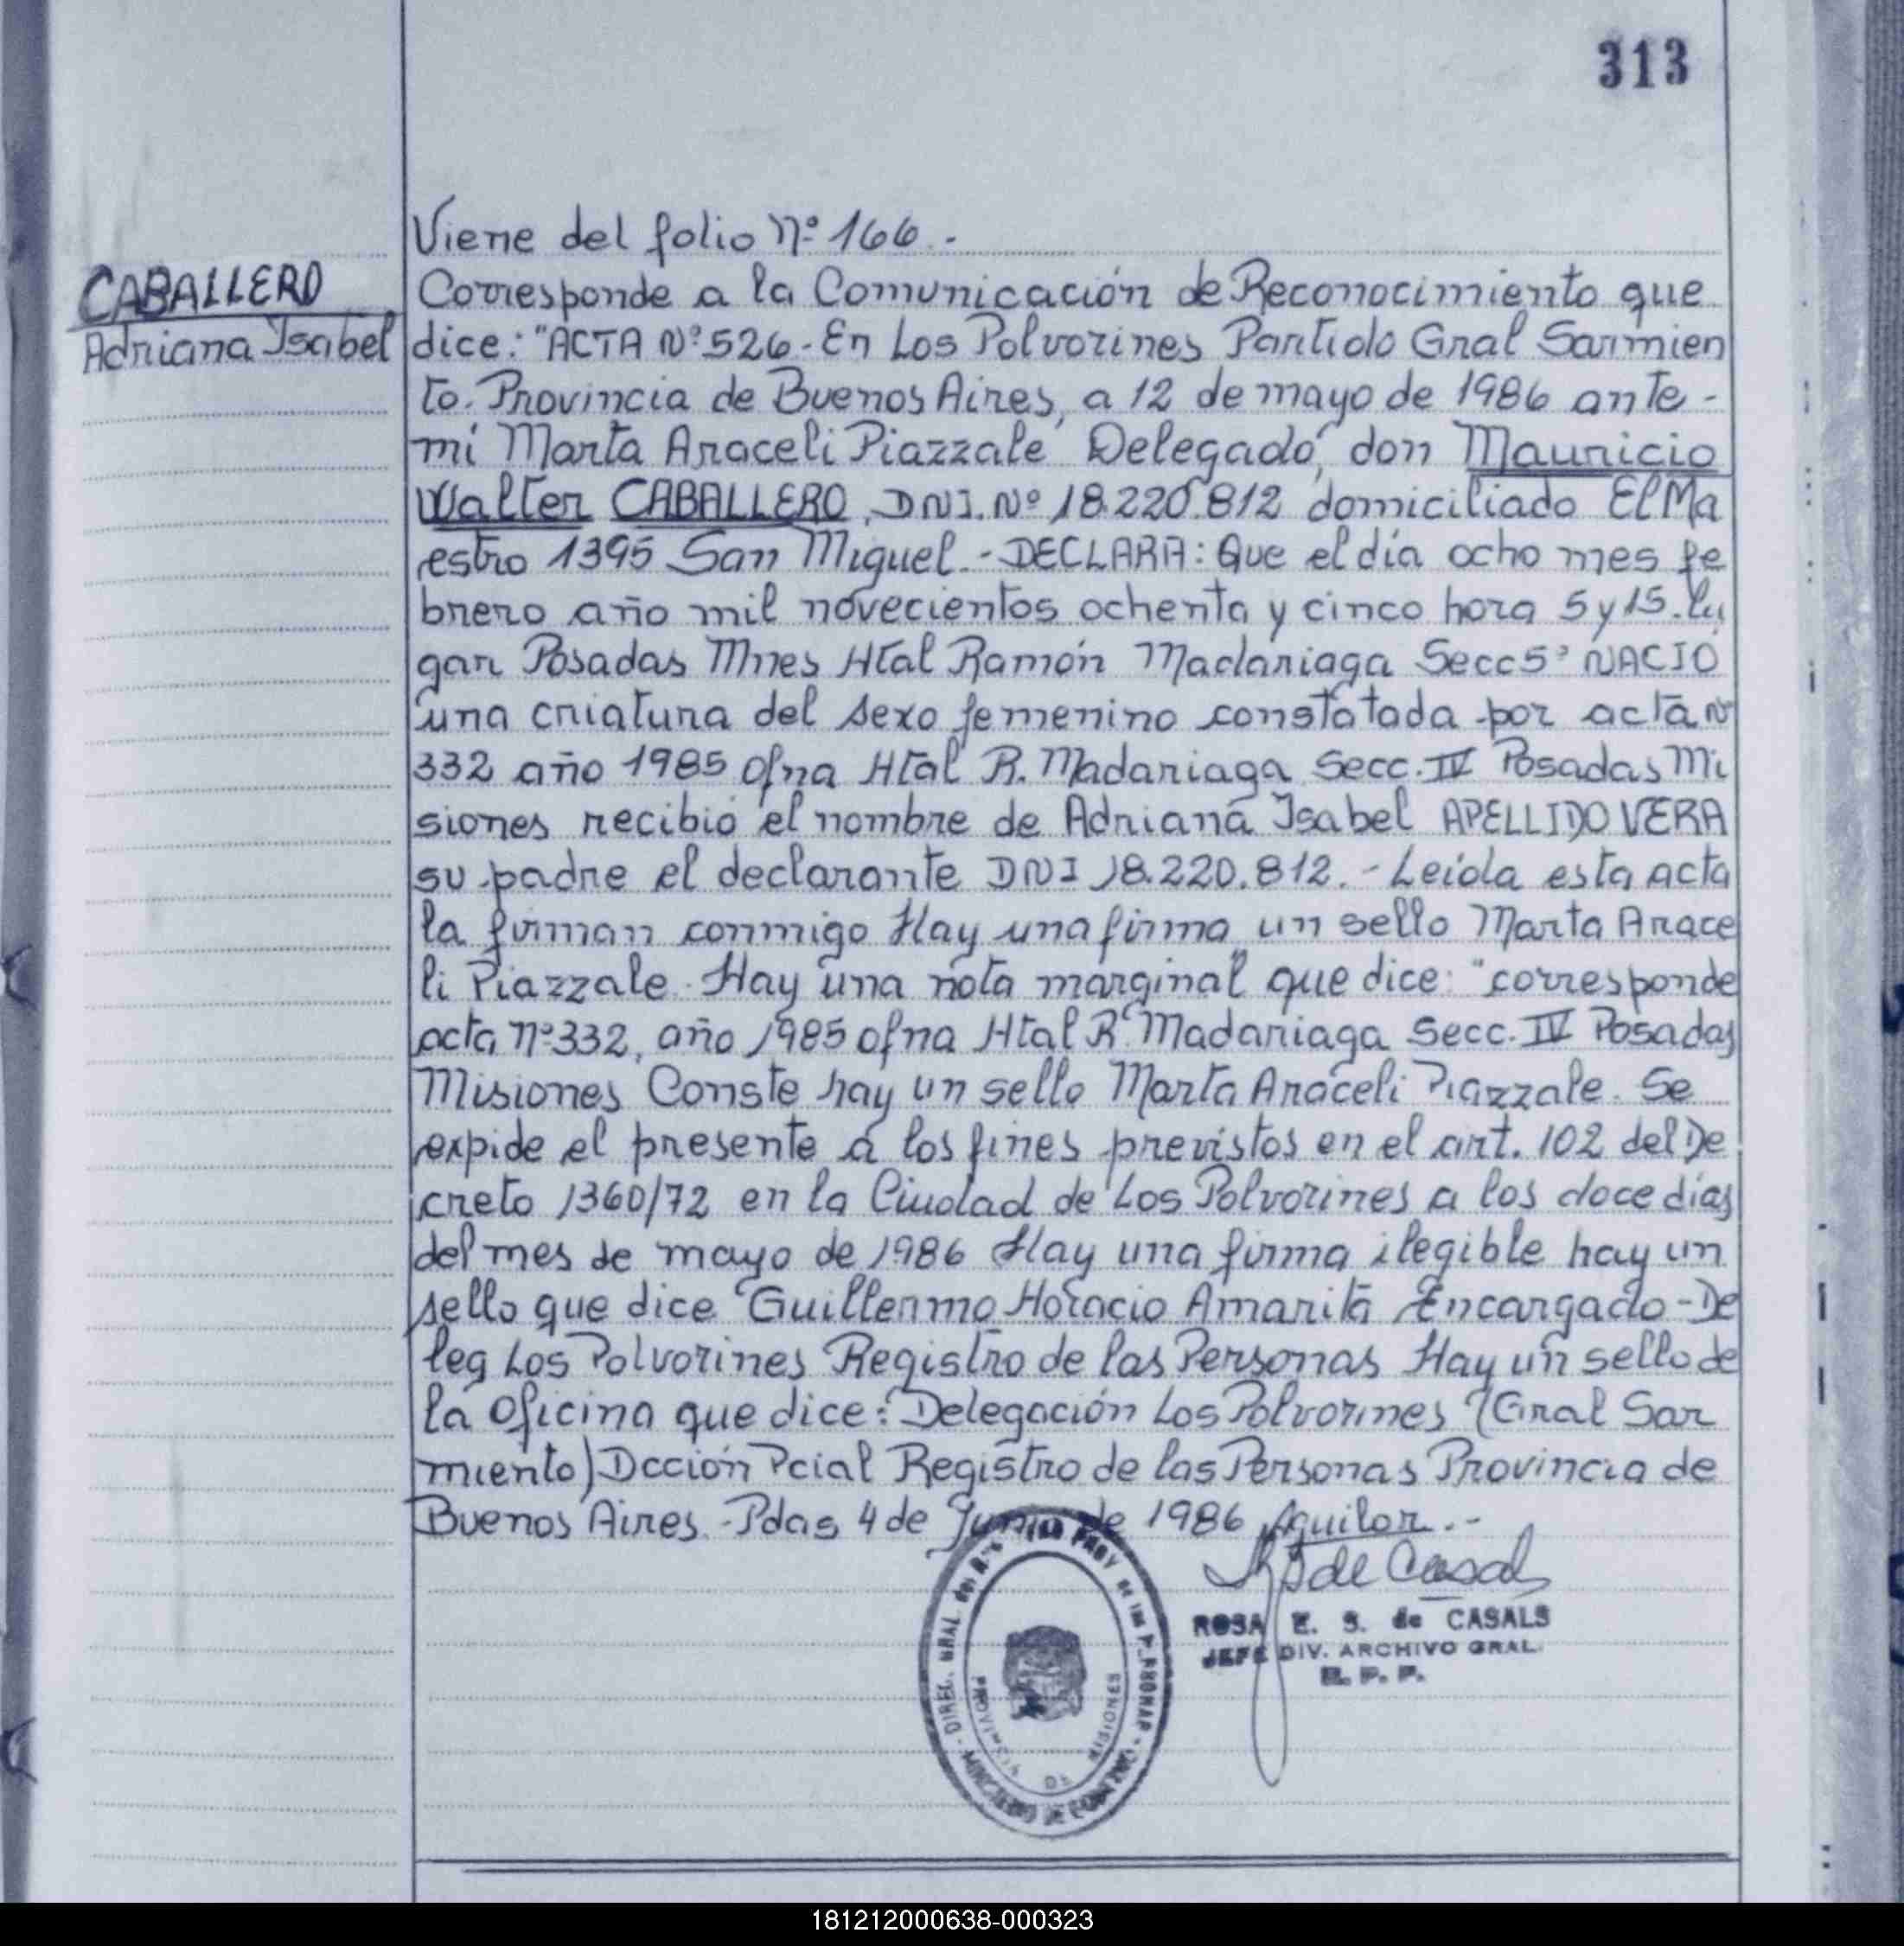 313
Viene del folio Nº 166.-
CABALLERO
Adriana Isabel
Corresponde a la Comunicación de Reconocimiento que
dice: "ACTA Nº 526.- En Los Polvorines Partido Gral Sarmien
to. Provincia de Buenos Aires, a 12 de mayo de 1986 ante-
mí Marta Araceli Piazzale Delegado, don Mauricio
Walter CABALLERO, DNI. Nº 18.220.812 domiciliado El Ma
estro 1395 San Miguel.- DECLARA: Que el día ocho mes fe
brero año mil novecientos ochenta y cinco hora 5 y 15. lu
gar Posadas Mnes Htal Ramón Madariaga Secc 5ª NACIO
una criatura del sexo femenino constatada por acta Nº
332 año 1985 ofna Htal R. Madariaga Secc. IV Posadas Mi
siones recibió el nombre de Adriana Isabel APELLIDO VERA
su padre el declarante DNI 18.220.812.- Leída esta acta
la firman conmigo Hay una firma un sello Marta Arace
li Piazzale. Hay una nota marginal que dice: "corresponde
acta Nº 332, año 1985 ofna Htal R. Madariaga Secc. IV Posadas
Misiones Conste hay un sello Marta Araceli Piazzale. Se
expide el presente a los fines previstos en el art. 102 del De
creto 1360/72 en la Ciudad de Los Polvorines a los doce días
del mes de mayo de 1986 Hay una firma ilegible hay un
sello que dice Guillermo Horacio Amarita Encargado - De
leg Los Polvorines Registro de las Personas Hay un sello de
la Oficina que dice: Delegación Los Polvorines (Gral Sar
miento) Dcción Pcial Registro de las Personas Provincia de
Buenos Aires.- Pdas 4 de Junio de 1986 Aguilar.-
de Casals
ROSA E. S. de CASALS
JEFE DIV. ARCHIVO GRAL.
R. P. P.
DIREC. GRAL. del
PROVINCIA DE MISIONES
181212000638-000323